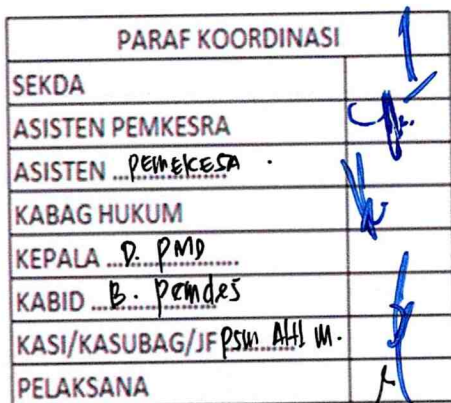 PARAF KOORDINASI
SEKDA
ASISTEN PEMKESRA
ASISTEN ... PEMEKESA .
KABAG HUKUM
KEPALA ... D. PMD ...
KABID ... B. Pemdes
KASI/KASUBAG/JF PSM Ahli M.
PELAKSANA